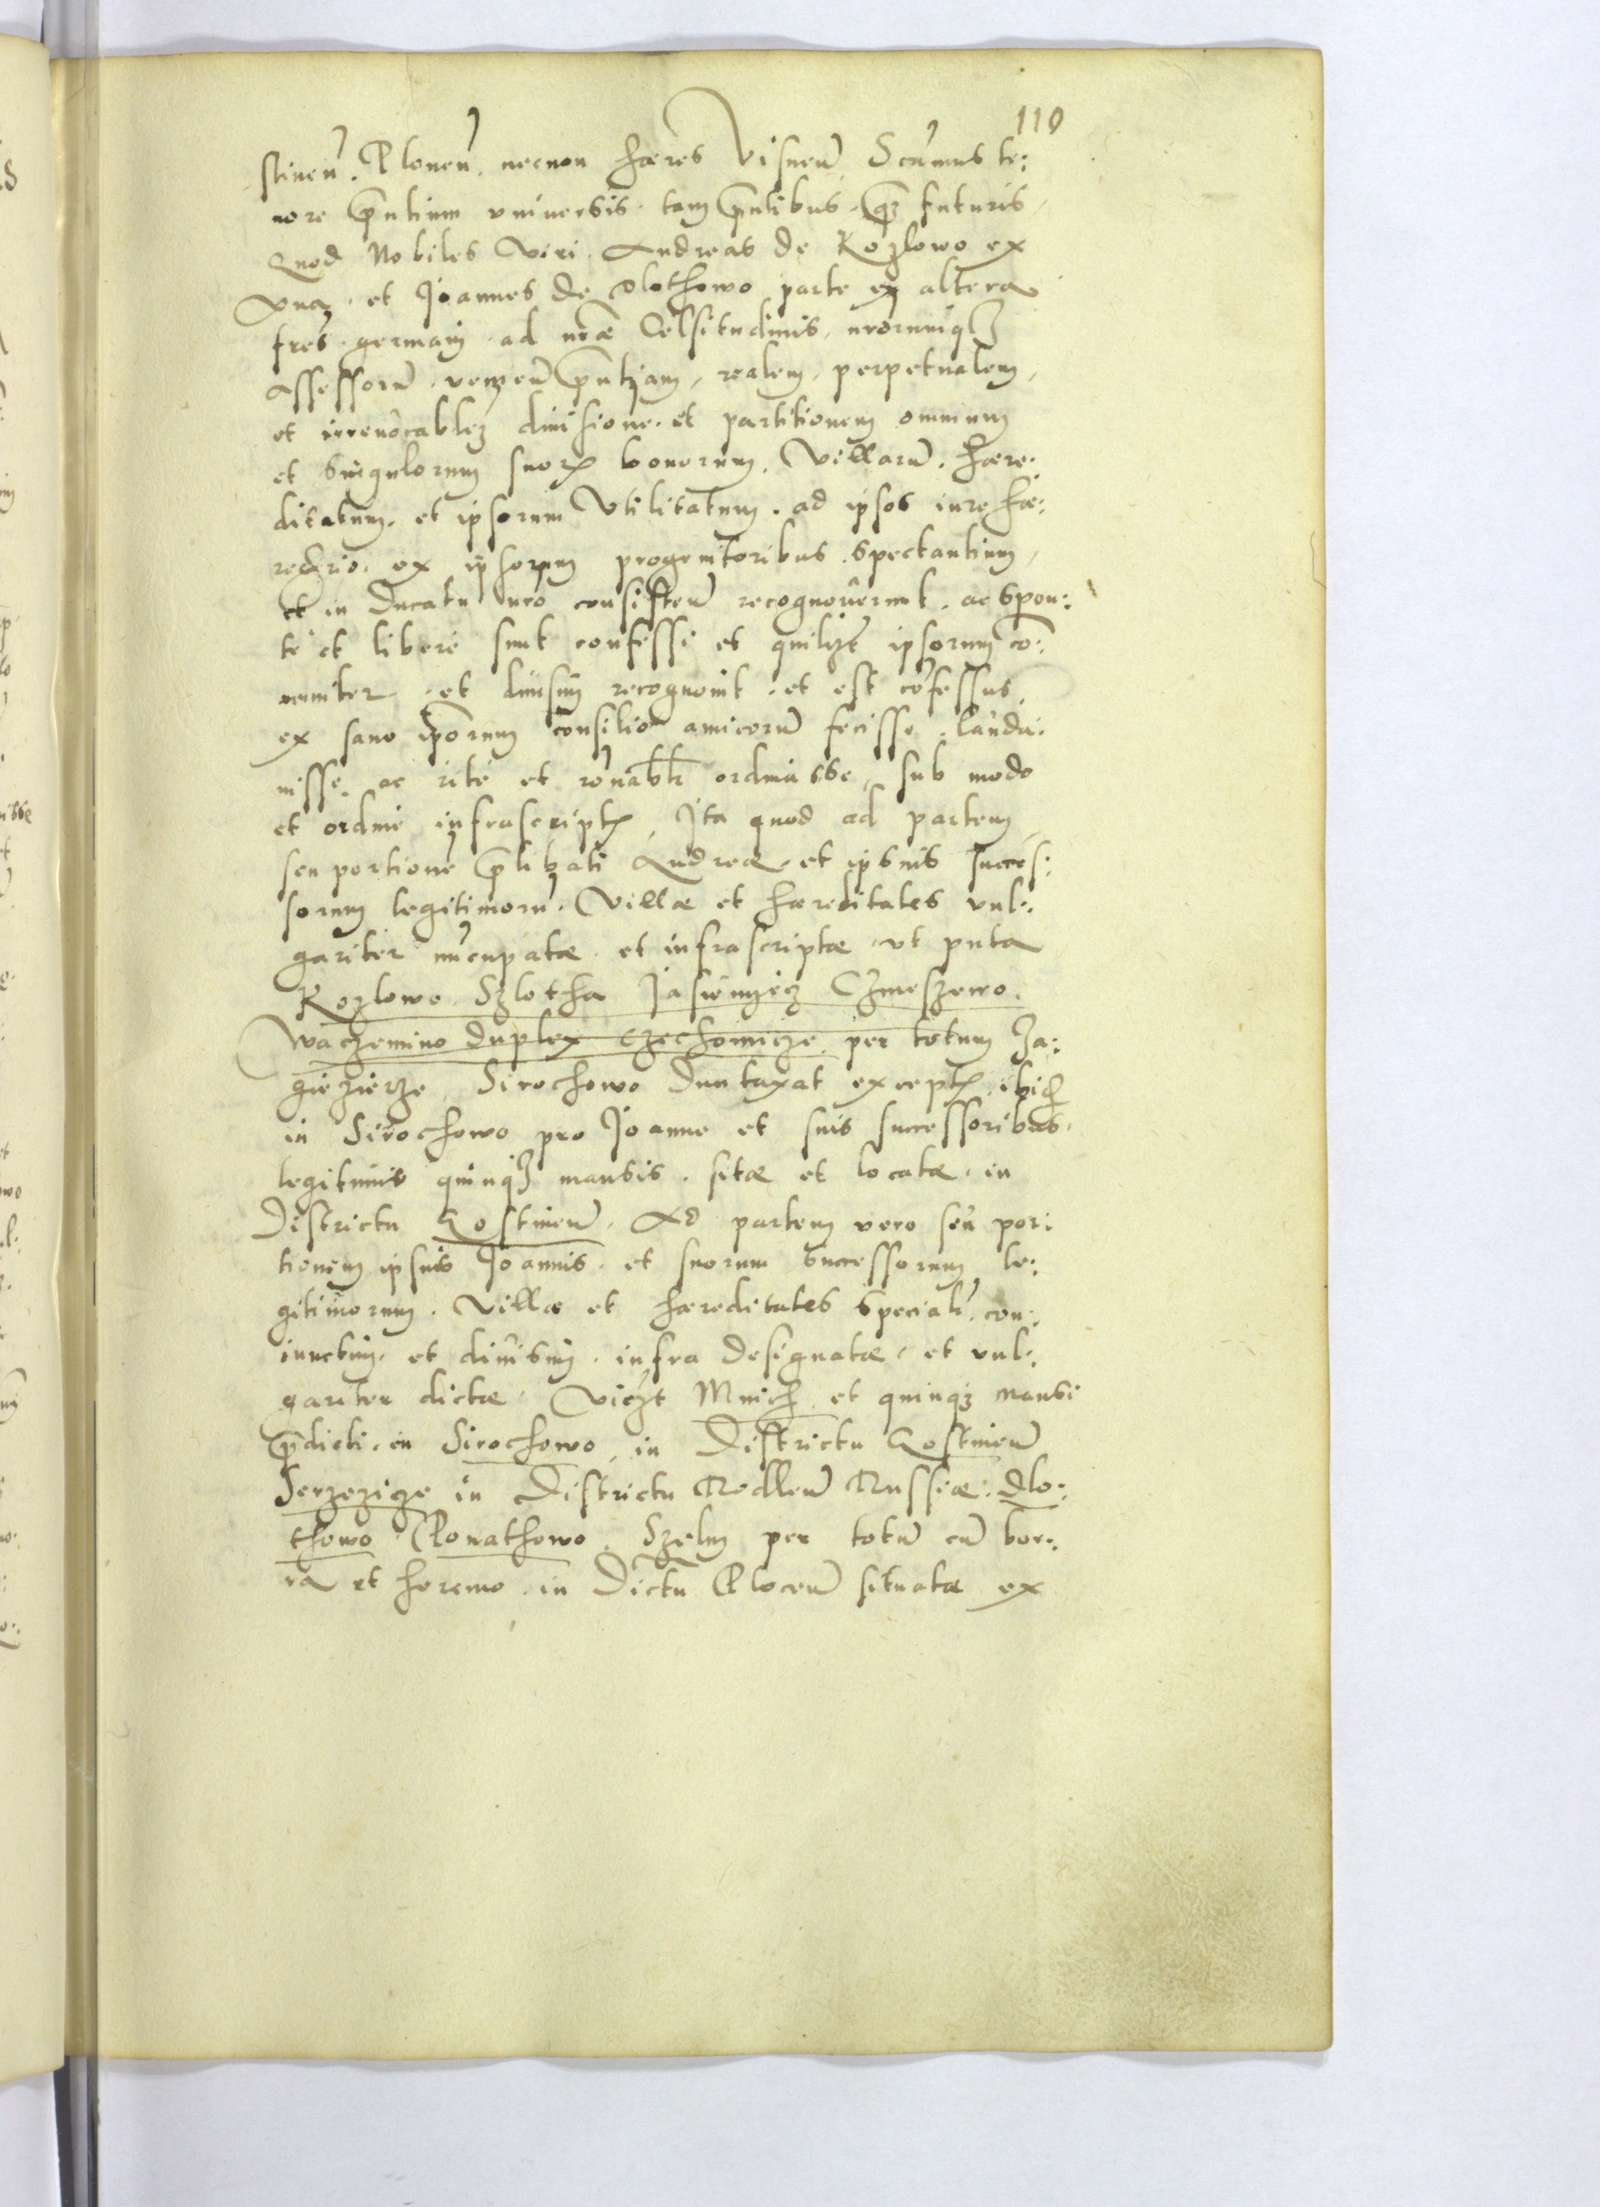 110
stinen̄. Plonen̄. necnon hæres Visnen̄ Scim̄us te:
nore p̄ntium vniuersis tam p̄ntibus q̄ȝ futuris
Quod Nobiles Viri Andreas de Kozlowo ex
vna et Joannes de Dlothowo parte ex altera
fr̄es germani ad nr̄æ Celsitudinis nrorumqȝ
Assessorū p̄ntiam, realem, perpetualem,
et irreuocablem diuisionē et partitionem omnium
et singulorum suorꝝ bonorum, Villarū, hære:
ditatum, et ipsorum Vtilitatum, ad ipsos iure hæ:
redrio ex ipsorum progenitoribus spectantium,
et in Ducatu nro consisten̄ recognouerunt ac spon:
te et libere sunt confessi et quilibet ipsorum cō:
muniter et diuisim recognouit et est cōfessus
ex sano ipsorum consilio amicorū fecisse, lauda:
uisse, ac rite et ronabłr ordinasse, sub modo
et ordine infrascriptꝭ, Ita quod ad partem
seu portionē p̄libati Andreæ et ipsius succes:
sorum legitimorū, Villæ et hæreditates vul:
gariter nūcupatæ et infrascriptæ vt puta
Kozlowo Szlotha Jasienyecz Czmeszewo
Waczemino duplex Czechomicze per totum Za:
giezierze, Sirochowo duntaxat exceptꝭ ibid̄
in Sirochowo pro Joanne et suis successoribus
legitimis quinqȝ mansis, sitæ et locatæ in
Districtu Gostinen̄. Ad partem vero seu por:
tionem ipsius Joannis et suorum successorum le:
gitimorum, Villæ et hæreditates specialr con:
iunctim et diuisim infra designatæ et vul:
gariter dictæ Viczt Mnich et quinqȝ mansi
p̄dicti in Sirochowo in Districtu Gostinen̄
Serzezicze in Districtu Russiæ, Dlo:
thowo Ronathowo Szelm per totū cū bor:
ra et heremo in Dictu Plocen̄ situatæ ex